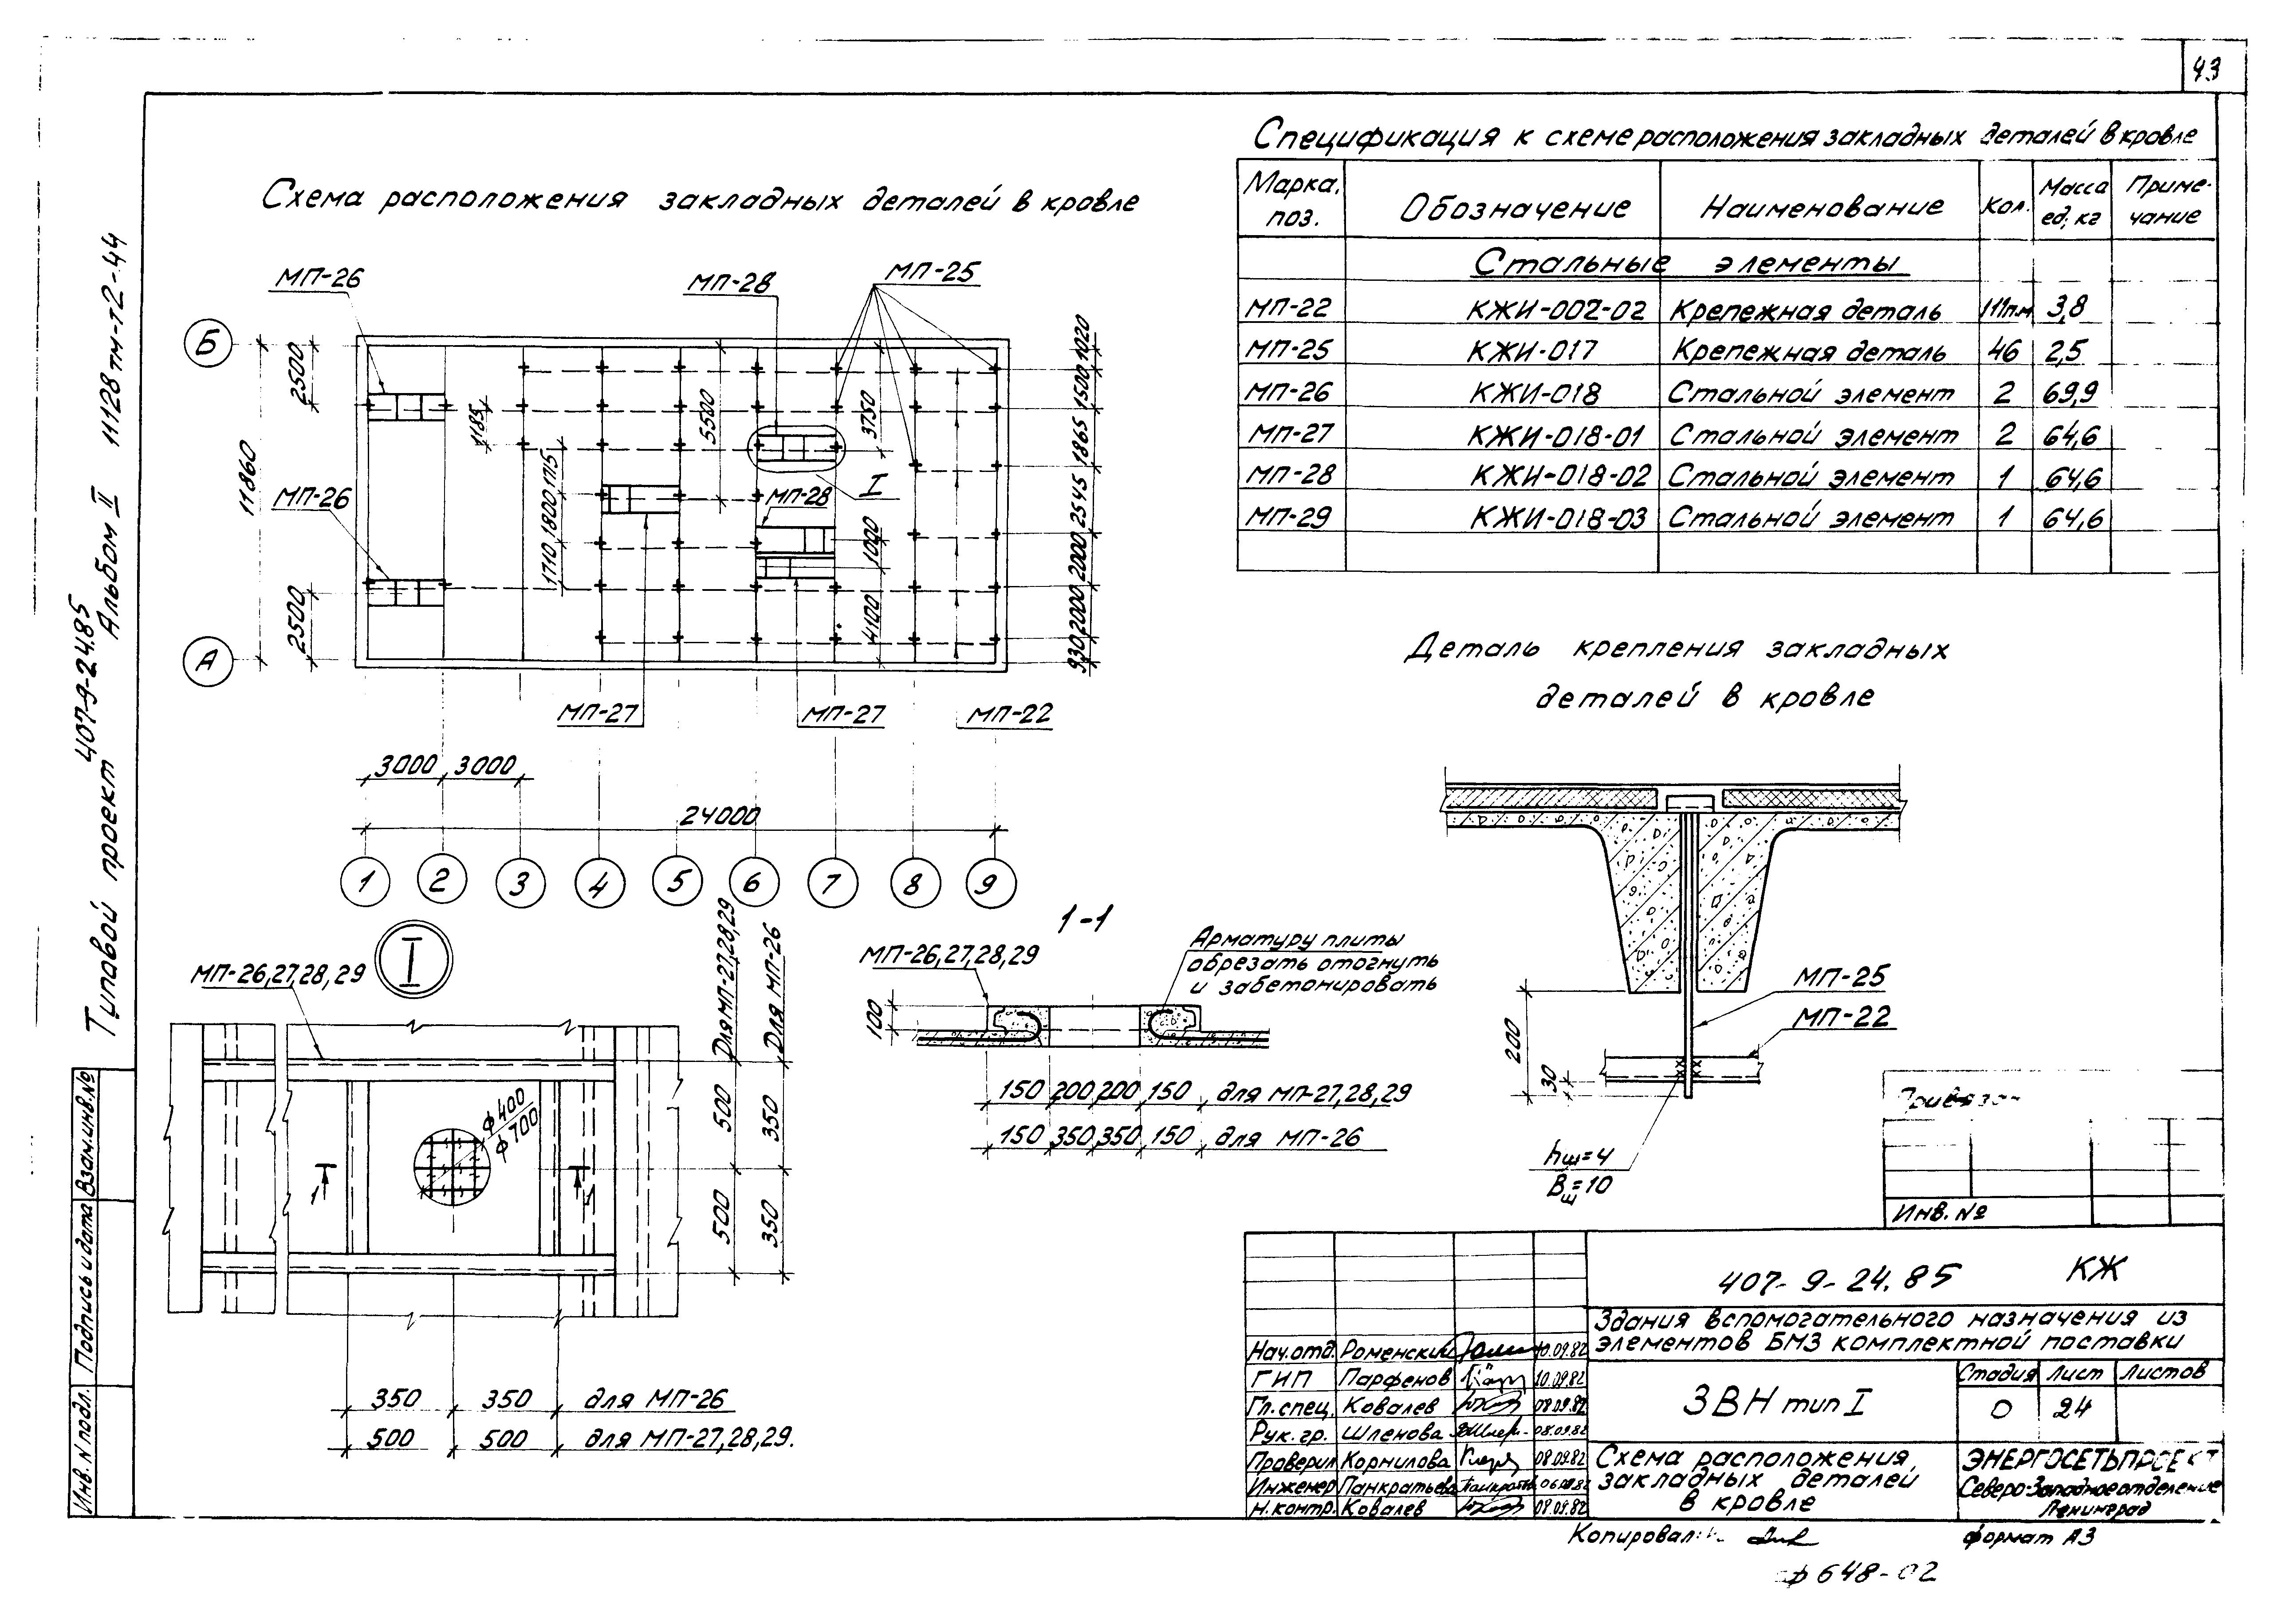 43
Схема расположения закладных деталей в кровле
МП-26
МП-28
МП-25
Б
А
2500
11860
2500
МП-26
1185
1710 1800 1715
5500
3750
1000
4100
I
МП-28
1020
1500
1865
2545
2000
2000
930
МП-27
МП-27
МП-22
3000 3000
24000
1 2 3 4 5 6 7 8 9
Спецификация к схеме расположения закладных деталей в кровле
Марка, поз. Обозначение Наименование Кол. Масса ед; кг Приме-чание
Стальные элементы
МП-22 КЖИ-002-02 Крепежная деталь 111п.м 3,8
МП-25 КЖИ-017 Крепежная деталь 46 2,5
МП-26 КЖИ-018 Стальной элемент 2 69,9
МП-27 КЖИ-018-01 Стальной элемент 2 64,6
МП-28 КЖИ-018-02 Стальной элемент 1 64,6
МП-29 КЖИ-018-03 Стальной элемент 1 64,6
Деталь крепления закладных
деталей в кровле
МП-25
МП-22
200
30
hш=4
Bщ=10
I
МП-26,27,28,29
Для МП-27,28,29
Для МП-26
500
350
500
350
ф400
ф700
1
1
350 350 для МП-26
500 500 для МП-27,28,29.
1-1
МП-26,27,28,29
Арматуру плиты
обрезать отогнуть
и забетонировать
100
150 200 200 150 для МП-27,28,29
150 350 350 150 для МП-26
Типавой проект 407-9-24.85
Альбом II 11128тм-т2-44
Взам.инв.№
Подпись и дата
Инв.N подл.
Привязан
Инв. №
407-9-24.85 КЖ
Здания вспомогательного назначения из
элементов БМЗ комплектной поставки
Нач.отд. Роменский 10.09.82
ГИП Парфенов 10.09.82
Гл.спец. Ковалев 08.09.82
Рук.гр. Шленова 08.09.82
Проверил Корнилова 08.09.82
Инженер Панкратьева
Н.контр. Ковалев 09.09.82
ЗВН тип I
Стадия Лист Листов
О 24
Схема расположения
закладных деталей
в кровле
ЭНЕРГОСЕТЬПРОЕКТ
Северо-Западное отделение
Ленинград
Копировал:
формат А3
ф648-02